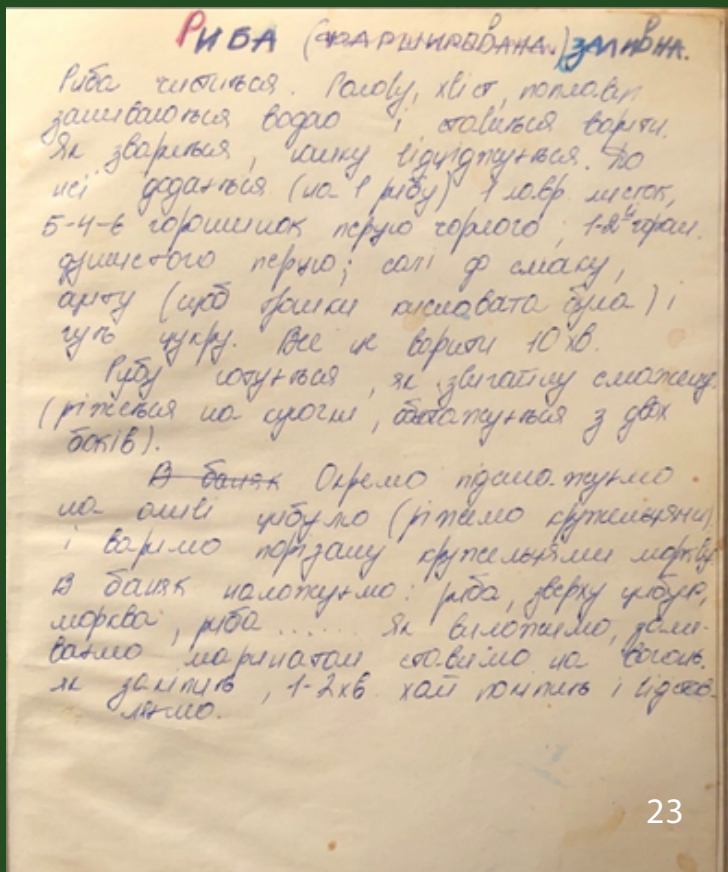 РИБА (ФАРШИРОВАНА) ЗАЛИВНА.
Риба чиститься. Голову, хвіст, поплавці
заливаються водою і ставиться варити.
Як звариться, юшку відціджується. До
неї додається (на 1 рибу) 1 лавр. листок,
5-4-6 горошинок перцю чорного, 1-2 горош.
душистого перцю; солі до смаку,
оцту (щоб трошки кисловата була) і
чуть цукру. Все це варити 10 хв.
Рибу готується, як звичайну смажену
(ріжеться на кусочки, обсмажується з двох
боків).
В баняк Окремо підсмажуємо
на олії цибулю (ріжемо кружельцями)
і варимо порізану кружельцями моркву.
В баняк наложуємо: риба, зверху цибуля,
морква, риба ..... Як виложимо, зали-
ваємо маринатом ставимо на вогонь.
Як закипить, 1-2 хв. хай покипить і відстав-
ляємо.
23